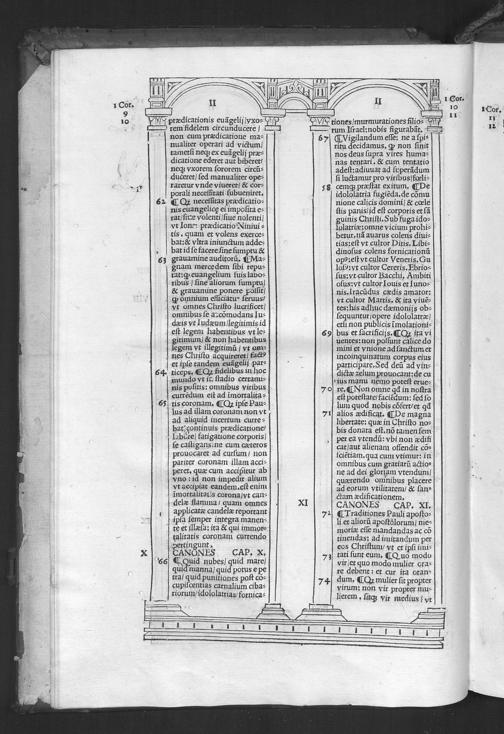 II
1 Cor.
9
10
prædicationis euãgelij/vxo-
rem fidelem circunducere/
non cum prædicatione ma-
nualiter operari ad victum/
tametsi neqȝ ex euãgelij præ-
dicatione ederet aut biberet/
neqȝ vxorem sororem circũ-
duceret/sed manualiter ope-
raretur vnde viueret & cor-
porali necessitati subueniret.
62 ¶Qȝ necessitas prædicatio-
nis euangelicæ ei imposita e-
rat/siue volenti/siue nolenti/
vt Ionæ prædicatio Niniui-
tis, quam et volens exerce-
bat: & vltra iniunctum adde-
bat id se facere sine sumptu &
63 grauamine auditorũ. ¶Ma-
gnam mercedem sibi repu-
tat: qȝ euangelium suis labo-
ribus/ sine aliorum sumptu/
& grauamine ponere posset:
qȝ omnium efficiat̃ seruus/
vt omnes Christo lucrificet/
omnibus se accõmodans Iu-
dæis vt Iudæum/legitimis id
est legem habentibus vt le-
gitimum/ & non habentibus
legem vt illegitimũ/ vt om-
nes Christo acquireret: fact9
et ipse tandem euãgelij par-
64 ticeps. ¶Qȝ fidelibus in hoc
mundo vt ĩ stadio certami-
nis positis: omnibus viribus
currẽdum est ad immortalita-
65 tis coronam. ¶Qȝ ipse Pau-
lus ad illam coronam non vt
ad aliquid incertum curre-
bat: continuis prædicatione
labore/ fatigatione corporis/
se castigans: ne cum cæteros
prouocaret ad cursum/ non
pariter coronam illam acci-
peret, quæ cum accipitur ab
vno: id non impedit alium
vt accipiat eandem. est enim
immortalitatis corona/vt can-
delæ flamma/ quam omnes
applicatæ candelæ reportant
ipsa semper integra manen-
te et illæsa: ita & qui immor-
talitatis coronam currendo
pertingunt.
X CANONES CAP. X.
66 ¶Quid nubes/ quid mare/
quid manna/ quid potus e pe
tra/ quid punitiones post cõ-
cupiscentias carnalium ciba-
riorum/idololatrias/fornica-
II
1 Cor.
10
11
tiones/murmurationes filio-
rum Israel: nobis figurabãt.
67 ¶Vigilandum esse: ne a spi-
ritu decidamus, qȝ non sinit
nos deus supra vires huma-
nas tentari. & cum tentatio
adest: adiuuat ad superãdum
si luctamur pro viribus: fœli-
68 cemqȝ præstat exitum. ¶De
idololatria fugiẽda. de cõmu
nione calicis domini/ & cœle
stis panis: id est corporis et sã
guinis Christi. Sub fuga ido-
lolatriæ: omne vicium prohi-
betur. nã auarus colens diui-
tias: est vt cultor Ditis. Libi-
dinosus colens fornicationũ
op9: est vt cultor Veneris. Gu
losus: vt cultor Cereris. Ebrio-
sus: vt cultor Bacchi. Ambiti
osus: vt cultor Iouis et Iuno-
nis. Iracũdus cædis amator:
vt cultor Martis. & ita viuẽ-
tes: his adhuc dæmonijs ob-
sequuntur: opere idololatræ/
etsi non publicis immolationi-
69 bus et sacrificijs. ¶Qȝ ita vi
uentes: non possunt calice do
mini et vnione ad sanctum et
incoinquinatum corpus eius
participare. Sed deũ ad vin-
dictæ zelum prouocant: de cu
ius manu nemo potest erue-
70 re. ¶Non omne qd in nostra
est potestate/ faciẽdum: sed so
lum quod nobis cõfert/et qd
71 alios ædificat. ¶De magna
libertate: quæ in Christo no-
bis donata est. nõ tamen sem
per ea vtendũ: vbi non ædifi
cat/aut alienam offendit cõ-
sciẽtiam. qua cum vtimur: in
omnibus cum gratiarũ actio
ne ad dei gloriam vtendum/
quærendo omnibus placere
ad eorum vtilitatem/ & san-
ctam ædificationem.
XI CANONES CAP. XI.
72 ¶Traditiones Pauli aposto-
li et aliorũ apostolorum/ me-
moriæ esse mandandas ac cõ
tinendas: ad imitandum per
eos Christum/ vt et ipsi imi-
73 tati sunt eum. ¶Quomodo
vir/et quo modo mulier ora-
re debent: et cur ita oran-
74 dum. ¶Qȝ mulier sit propter
virum: non vir propter mu-
lierem, sitqȝ vir medius/ vt
1 Cor.
11
12